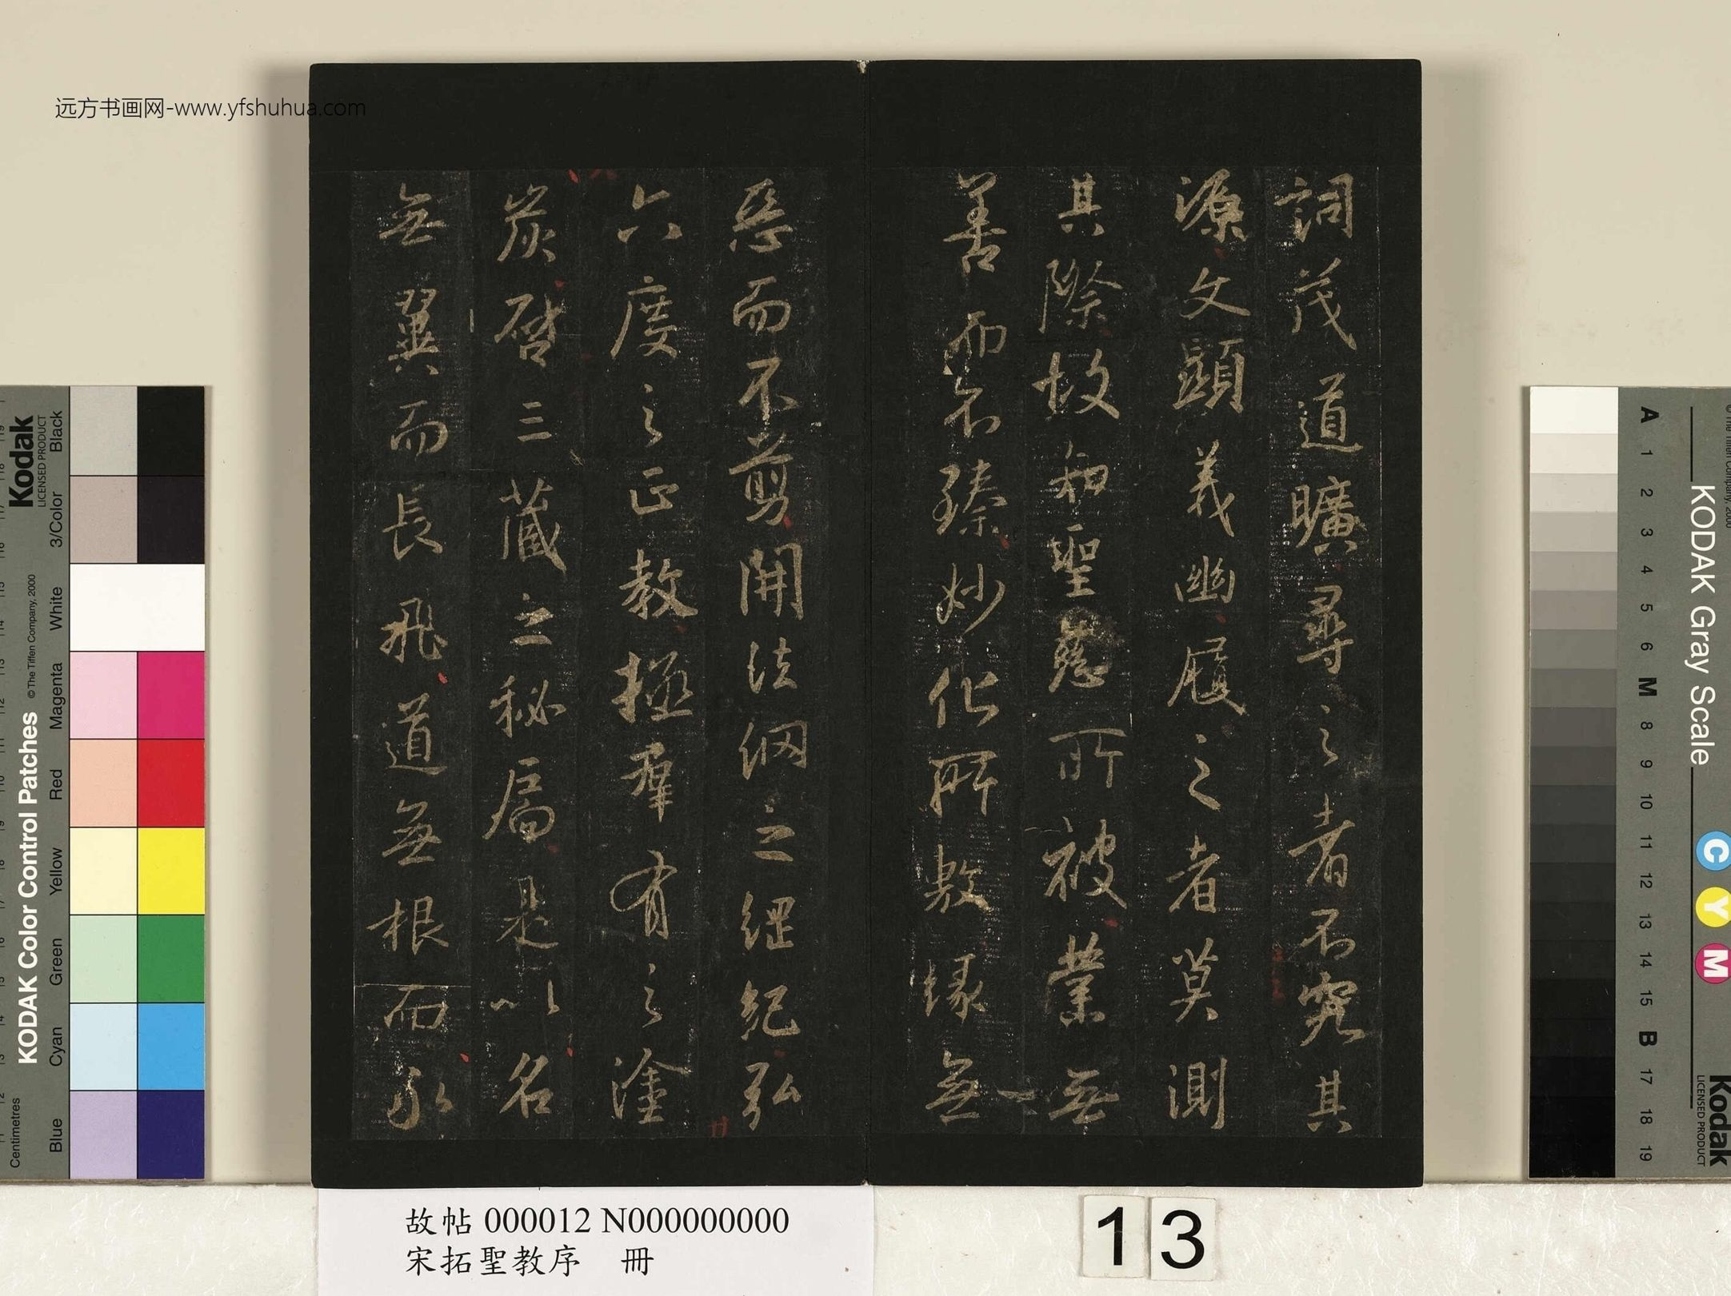 远方书画网-www.yfshuhua.com
詞茂道曠尋之者不究其
源文顯義幽履之者莫測
其際故知聖慈所被業無
善而不臻妙化所敷緣無
惡而不剪開法網之綱紀弘
六度之正教拯羣有之塗
炭啓三藏之秘扃是以名
無翼而長飛道無根而永
故帖 000012 N000000000
宋拓聖教序 冊
13
Kodak
LICENSED PRODUCT
KODAK Color Control Patches
© The Tiffen Company, 2000
Centimetres
Blue
Cyan
Green
Yellow
Red
Magenta
White
3/Color
Black
KODAK Gray Scale
C
Y
M
Kodak
LICENSED PRODUCT
A
1
2
3
4
5
6
M
8
9
10
11
12
13
14
15
B
17
18
19